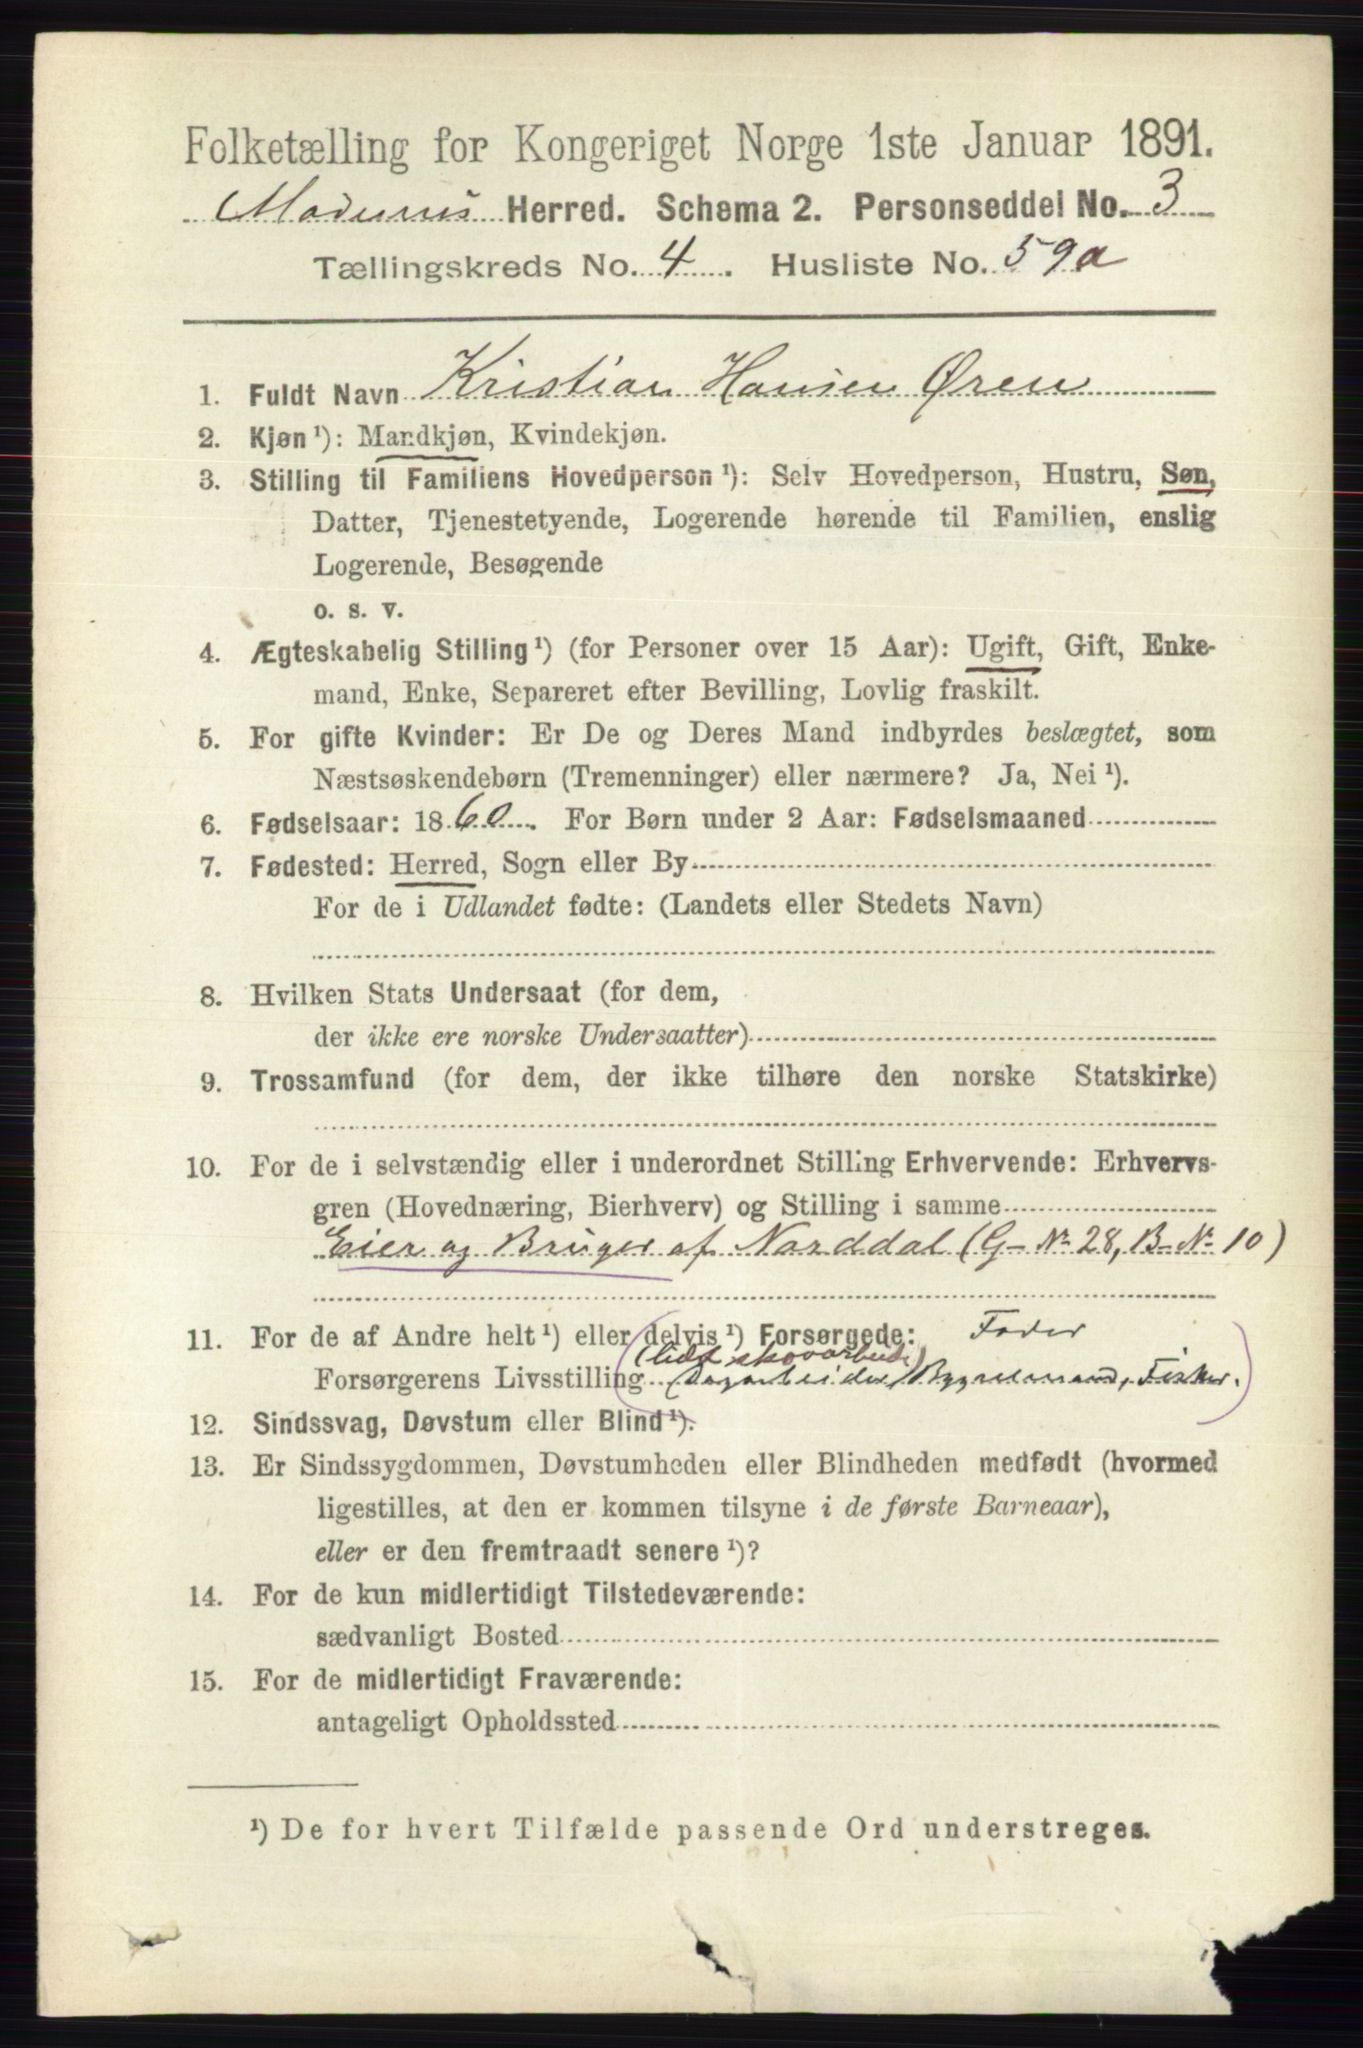 Folketælling for Kongeriget Norge 1ste Januar 1891.
Modums Herred. Schema 2. Personseddel No. 3
Tællingskreds No. 4. Husliste No. 59a
1. Fuldt Navn Kristian Hansen Øren
2. Kjøn¹): Mandkjøn, Kvindekjøn.
3. Stilling til Familiens Hovedperson¹): Selv Hovedperson, Hustru, Søn,
Datter, Tjenestetyende, Logerende hørende til Familien, enslig
Logerende, Besøgende
o. s. v.
4. Ægteskabelig Stilling¹) (for Personer over 15 Aar): Ugift, Gift, Enke-
mand, Enke, Separeret efter Bevilling, Lovlig fraskilt.
5. For gifte Kvinder: Er De og Deres Mand indbyrdes beslægtet, som
Næstsøskendebørn (Tremenninger) eller nærmere? Ja, Nei¹).
6. Fødselsaar: 1860. For Børn under 2 Aar: Fødselsmaaned
7. Fødested: Herred, Sogn eller By
For de i Udlandet fødte: (Landets eller Stedets Navn)
8. Hvilken Stats Undersaat (for dem,
der ikke ere norske Undersaatter)
9. Trossamfund (for dem, der ikke tilhøre den norske Statskirke)
10. For de i selvstændig eller i underordnet Stilling Erhvervende: Erhvervs-
gren (Hovednæring, Bierhverv) og Stilling i samme
Eier og Bruger af Norddal (G-Nr 28, B-Nr 10)
11. For de af Andre helt¹) eller delvis¹) Forsørgede: Fader
(lidt skovarbeide)
Forsørgerens Livsstilling (Dagarbeider, Bygselmand, Fisker.)
12. Sindssvag, Døvstum eller Blind¹).
13. Er Sindssygdommen, Døvstumheden eller Blindheden medfødt (hvormed
ligestilles, at den er kommen tilsyne i de første Barneaar),
eller er den fremtraadt senere¹)?
14. For de kun midlertidigt Tilstedeværende:
sædvanligt Bosted
15. For de midlertidigt Fraværende:
antageligt Opholdssted
¹) De for hvert Tilfælde passende Ord understreges.